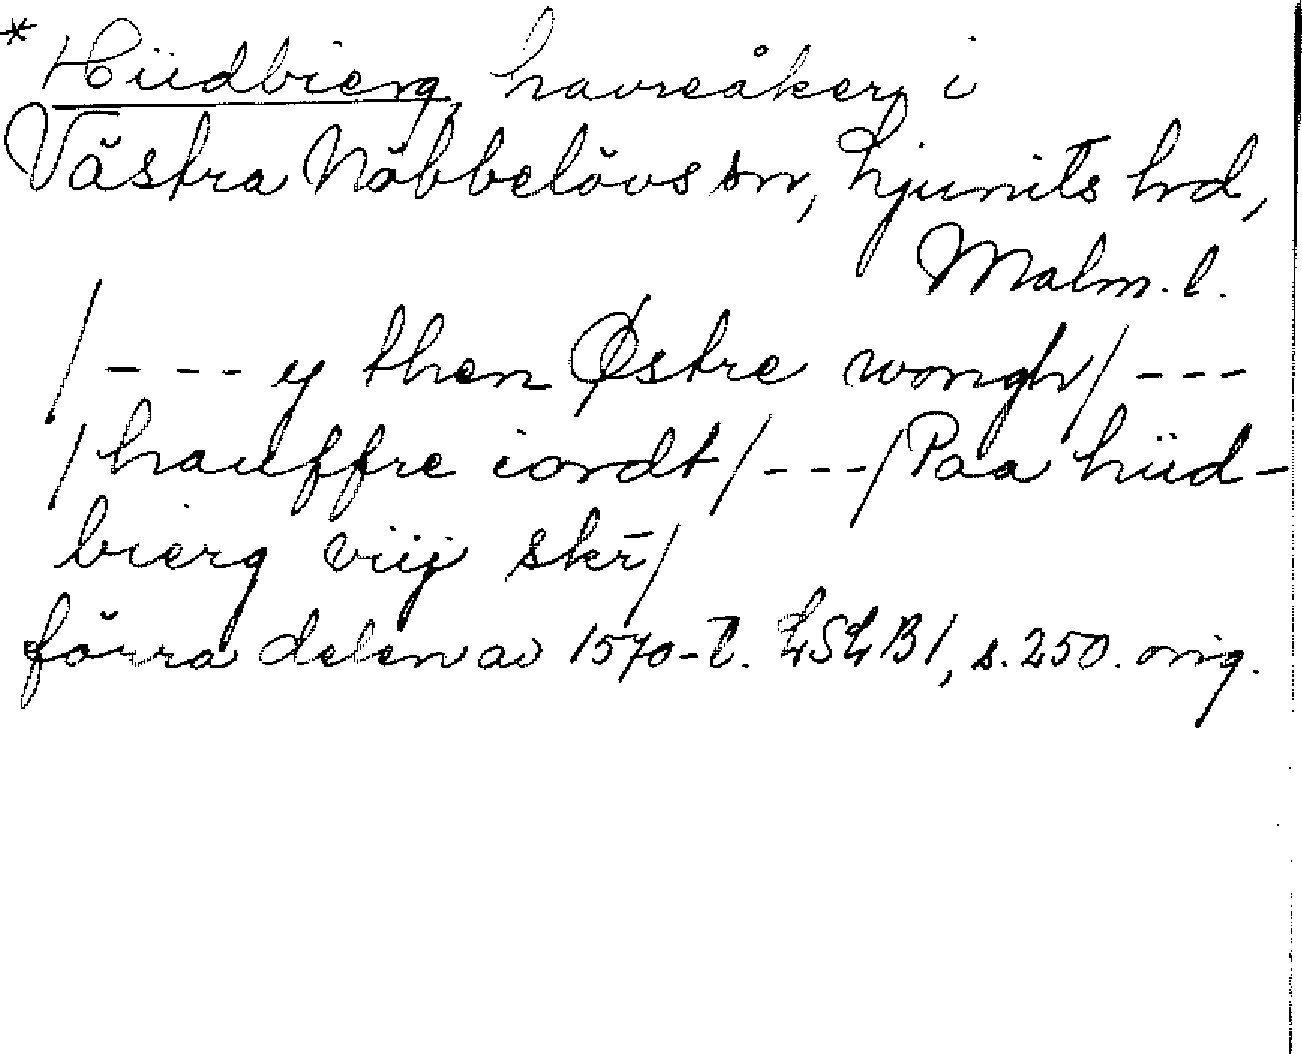 * Hüdbierg, havreåker i
Västra Nöbbelövs sn, Ljunits hd,
Malm. l.
/---y then Østre wongh/---
/hauffre iordt/---/Paa hüd-
bierg viij skr̄/
förra delen av 1570-t. LSLB1, s. 250. orig.